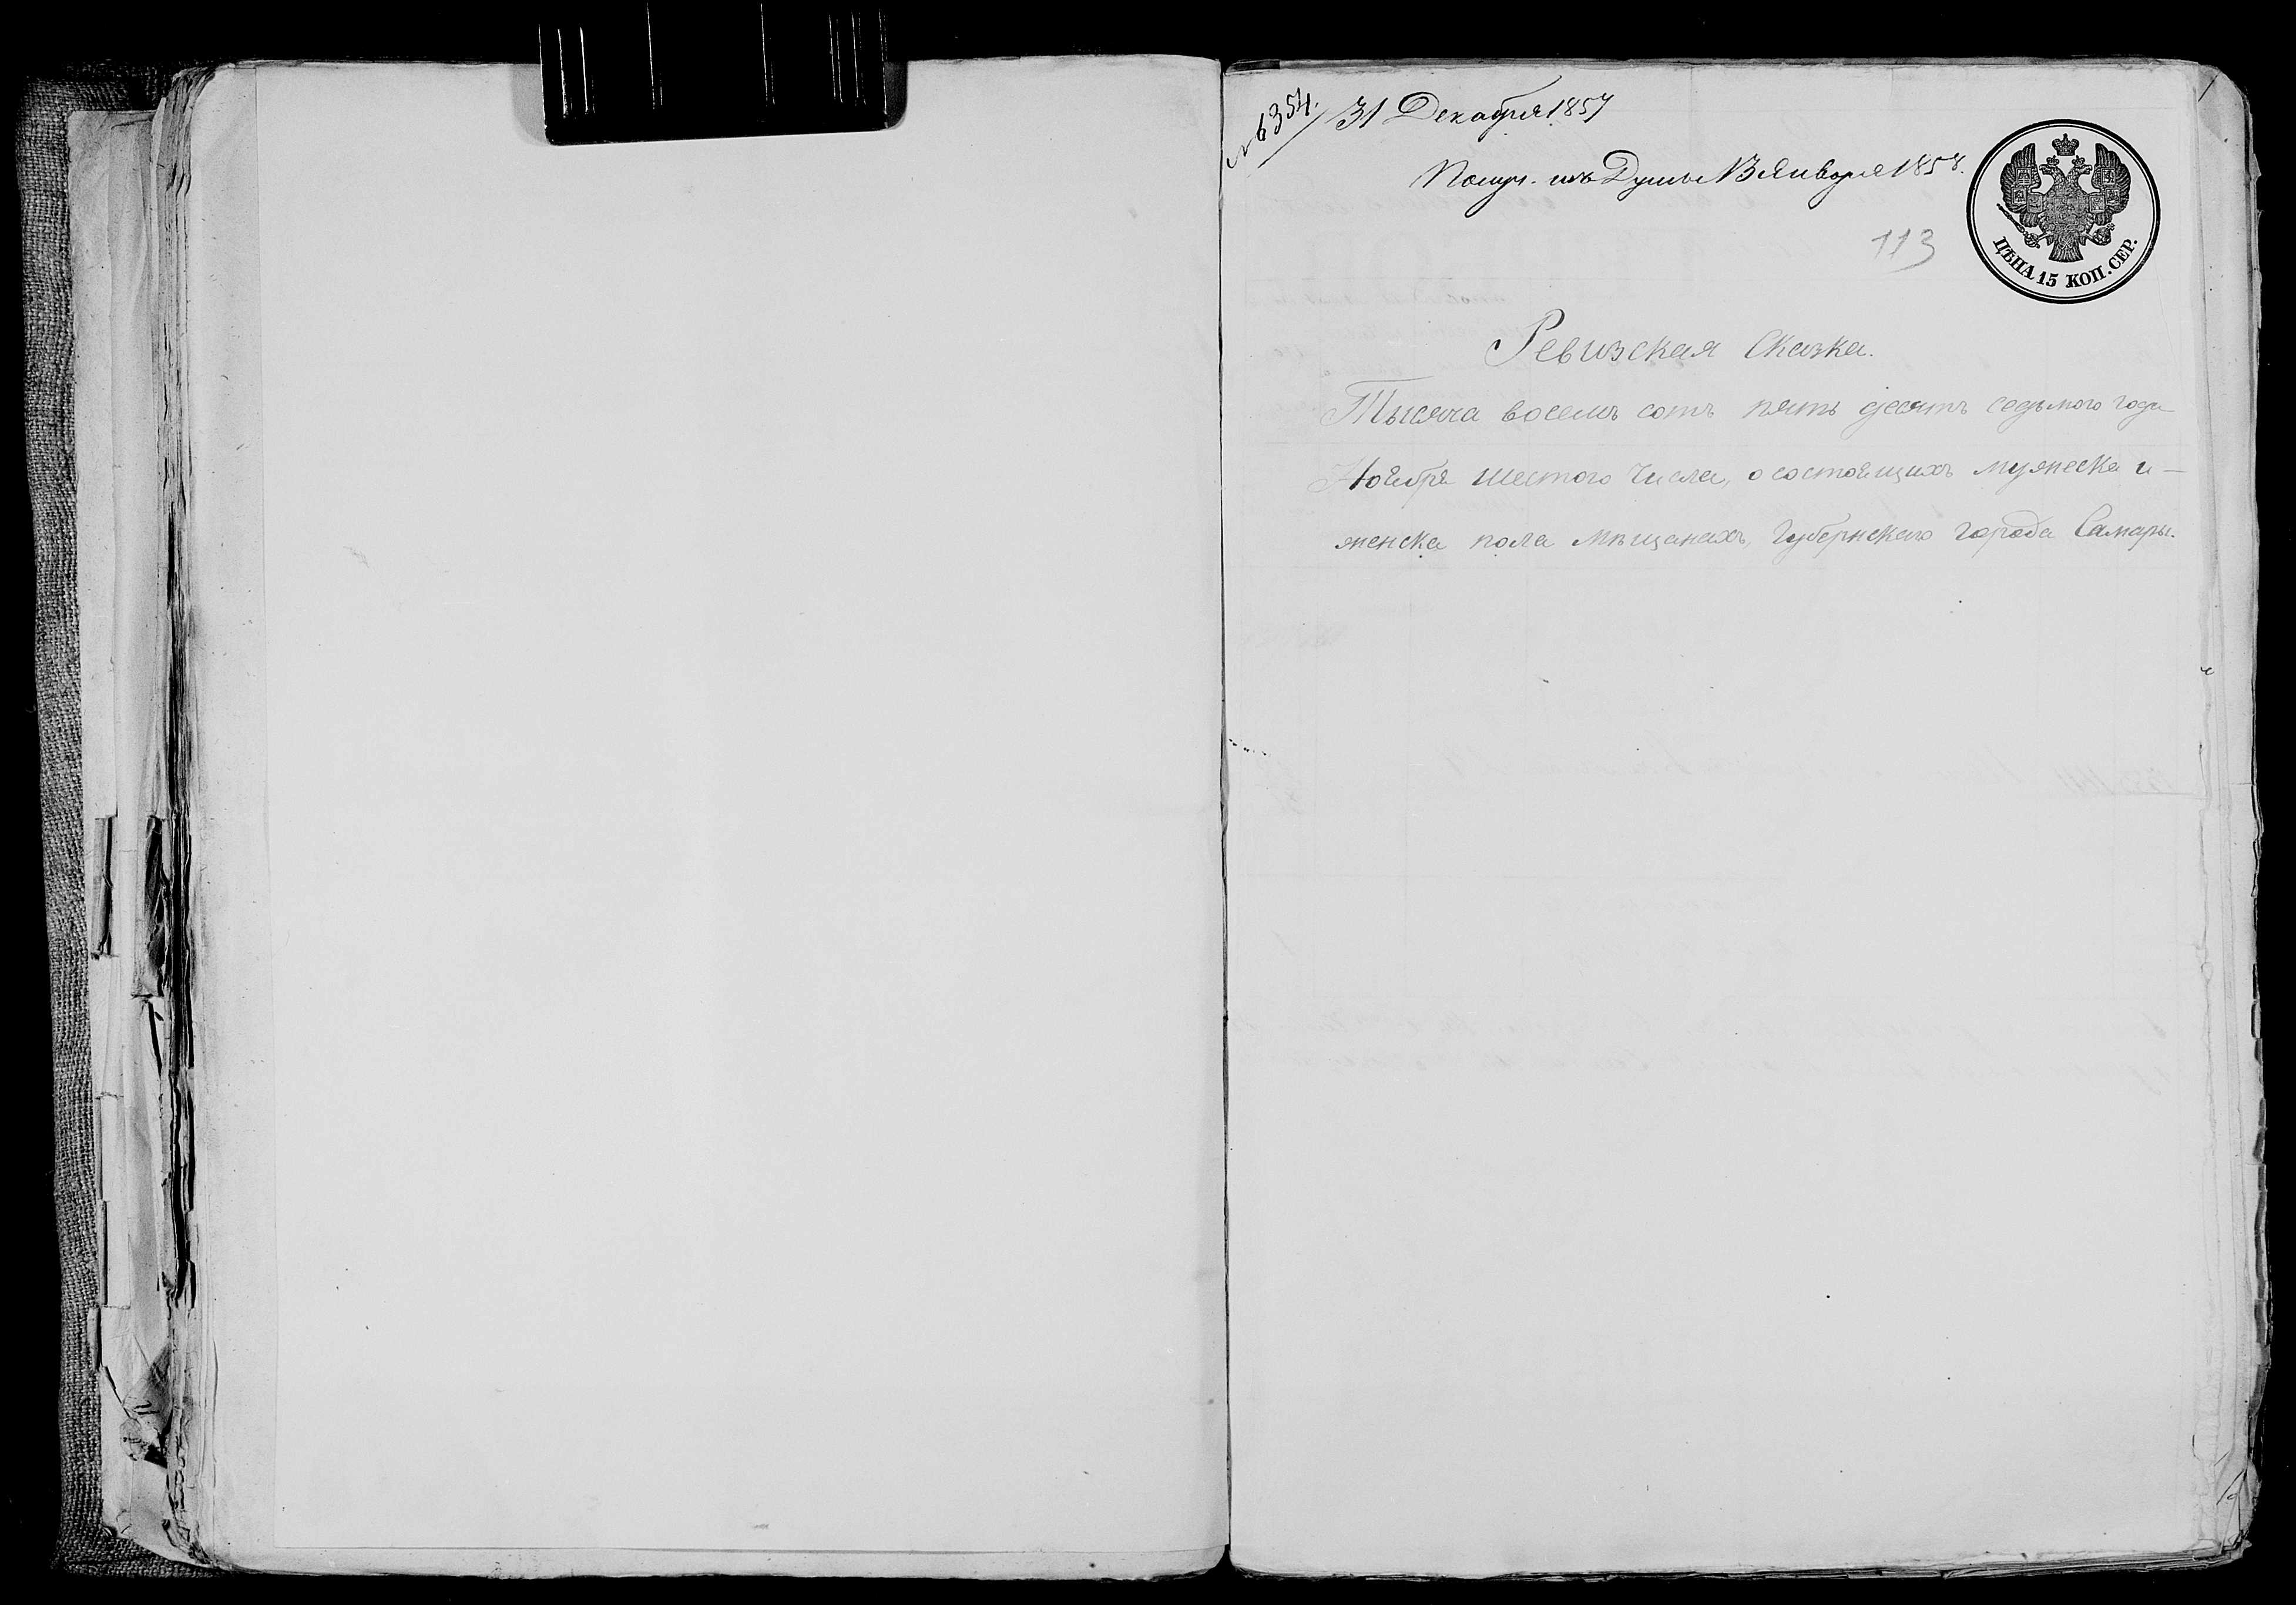 № 6354. 31 Декабря 1857
Получ. изъ Думы 13 Января 1858.
113
ЦѢНА 15 КОП. СЕР.
Ревизская Сказка.
Тысяча восемь сотъ пять десятъ седьмого года
Ноября шестого числа, о состоящихъ мужеска и
женска пола мѣщанахъ, Губернскаго города Самары.